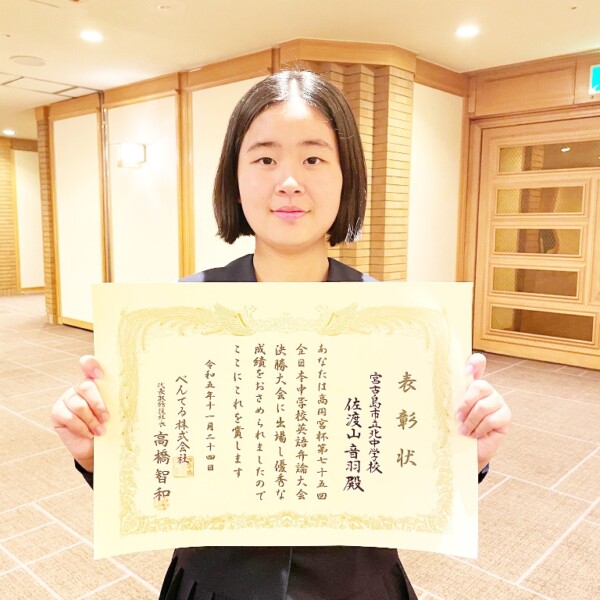 表彰状
宮古島市立北中学校
佐渡山音羽殿
あなたは高円宮杯第七十五回
全日本中学校英語弁論大会
決勝大会に出場し優秀な
成績をおさめられましたので
ここにこれを賞します
令和五年十一月二十四日
ぺんてる株式会社
代表取締役社長 高橋智和